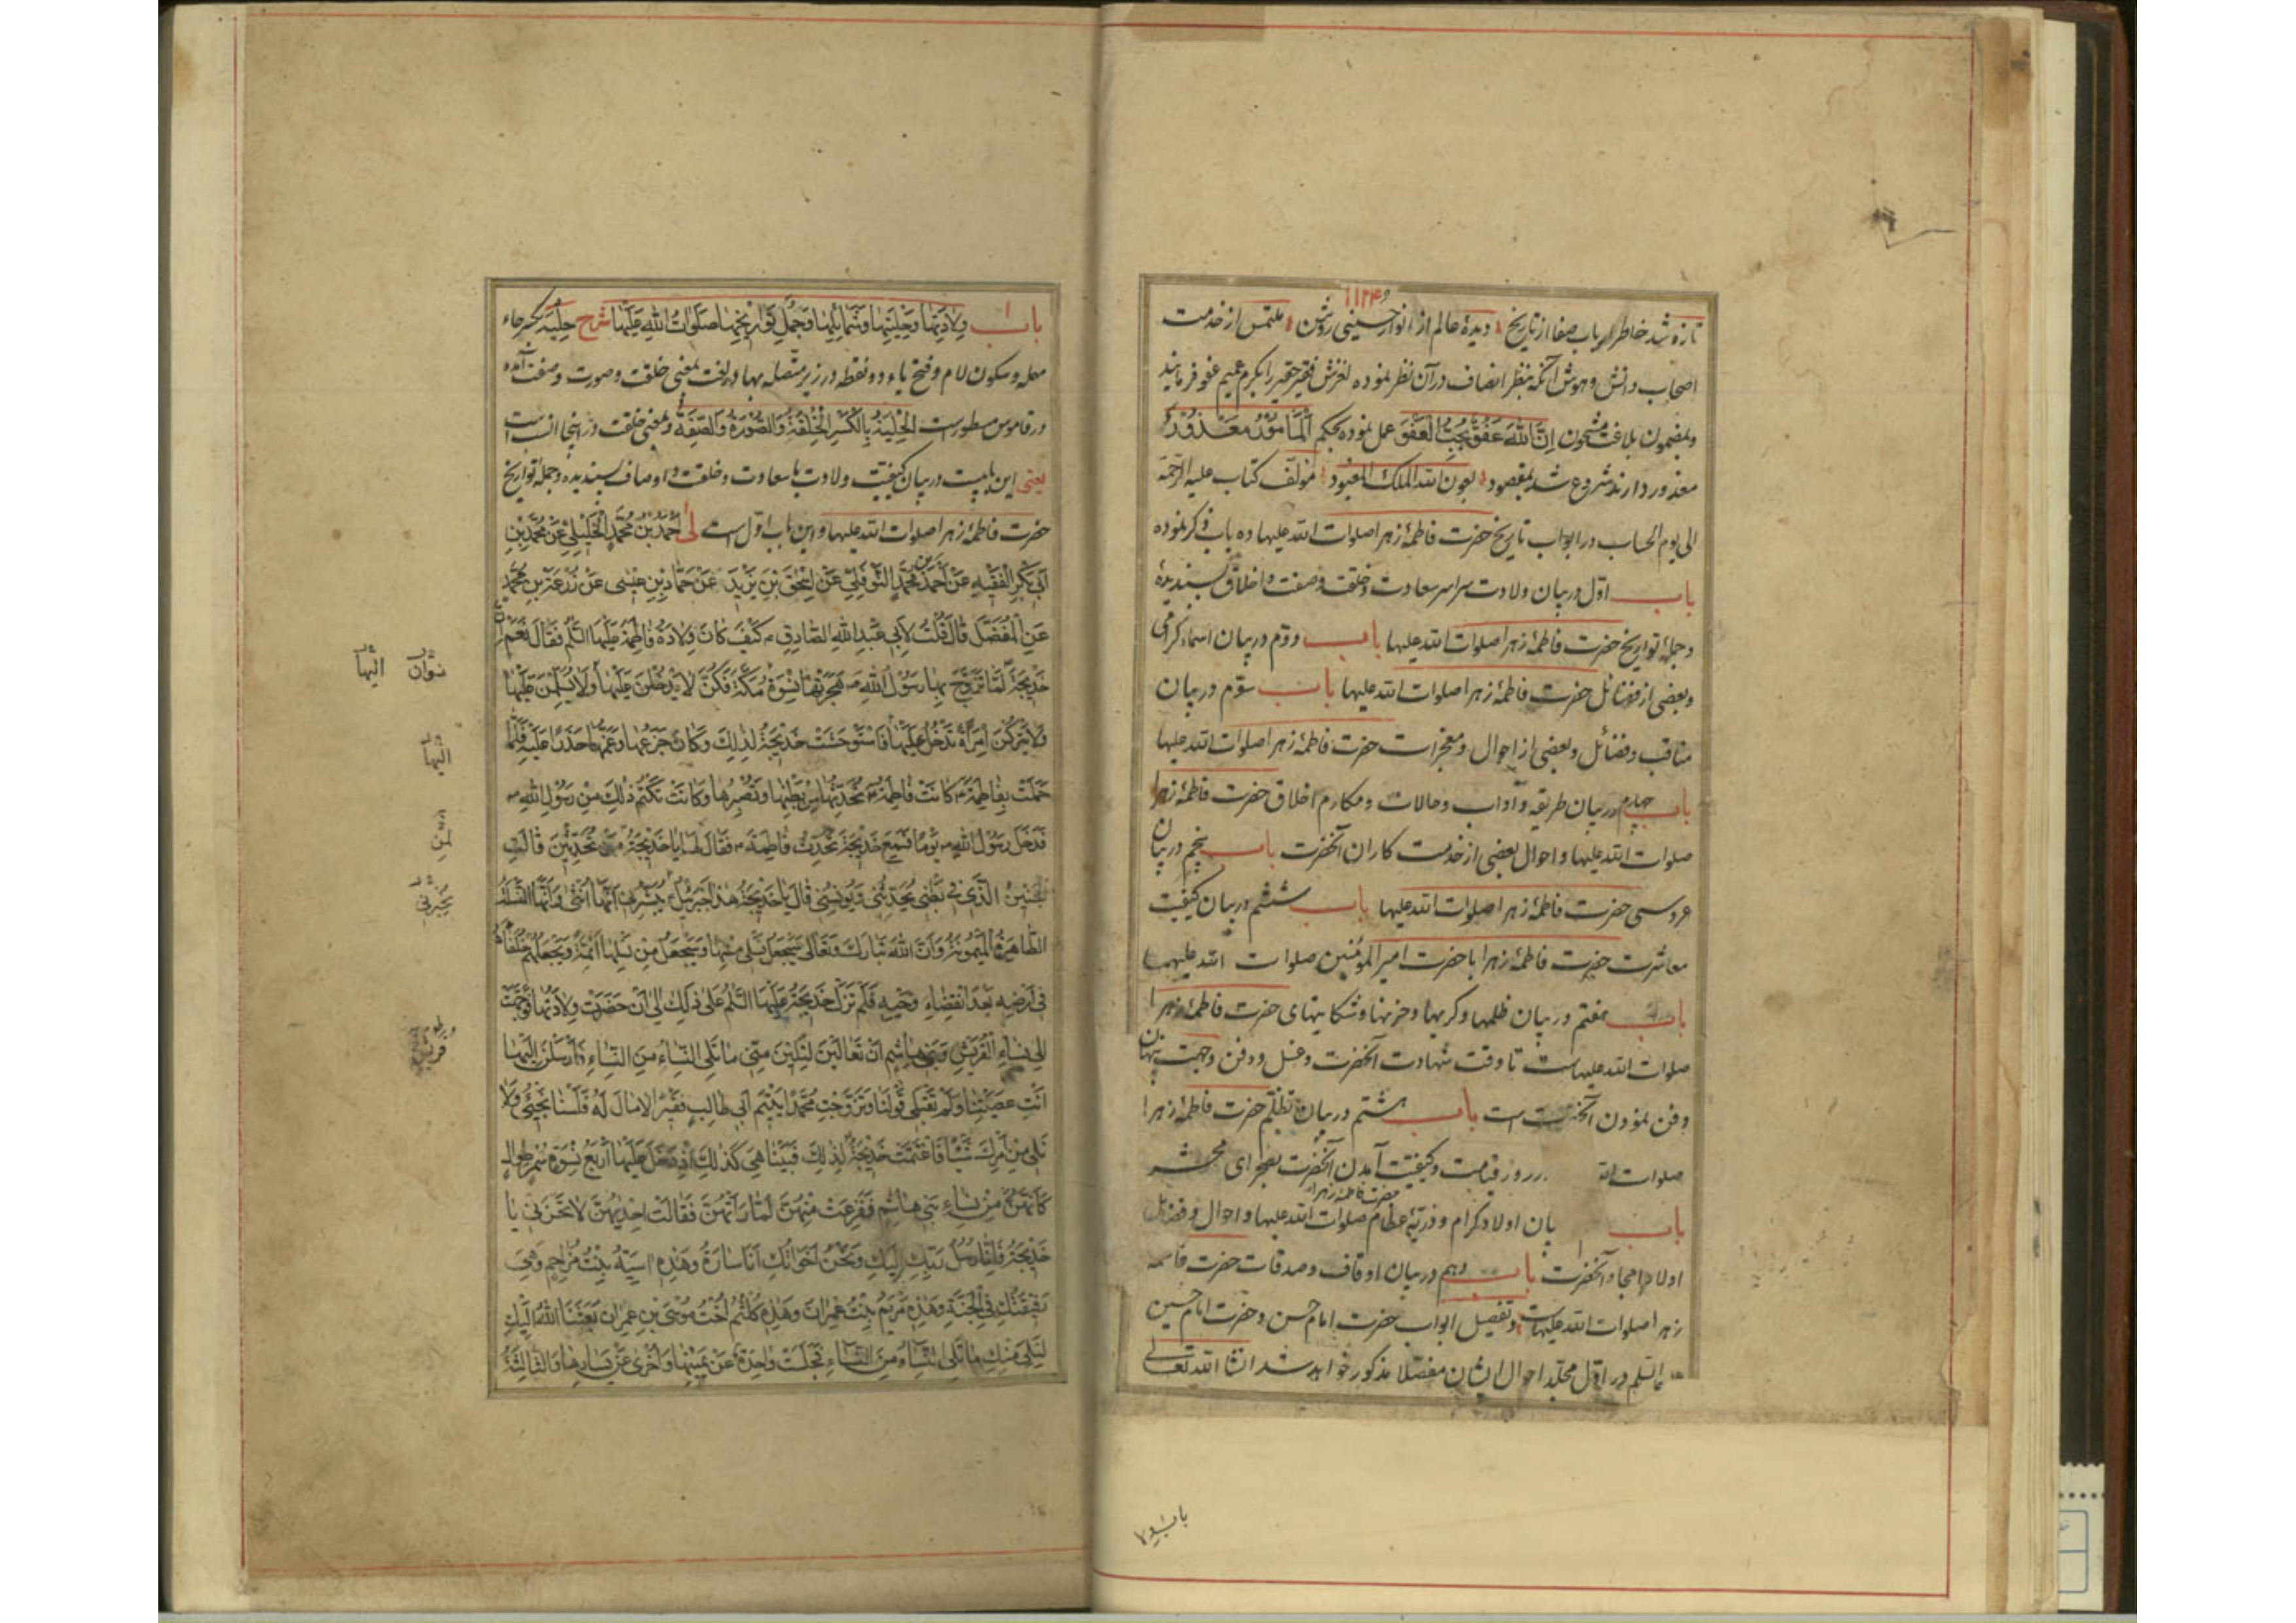 ۱۱۲۴
تازه شد خاطر ارباب صفا از تاریخ دیدهٔ عالم از انوار حسینی روشن ملتمس از خدمت
اصحاب دانش و هوش آنکه بنظر انصاف درآن نظر نموده لغزش فقیر حقیر را بکرم عمیم عفو فرمایند
وبمضمون بلاغت مشحون اِنَّ اللّٰهَ عَفُوٌّ یُحِبُّ العَفْوَ عمل نموده بحکم اَلْمَأمُوْرُ مَعْذُوْرٌ
معذور دارند شروع شد بمقصود بعون الله الملک المعبود مولف کتاب علیه الرحمة
الی یوم الحساب در ابواب تاریخ حضرت فاطمهٔ زهرا صلوات الله علیها ده باب ذکر نموده
باب اول در بیان ولادت سراسر سعادت وخلقت وصفت واخلاق پسندیدهٔ
وجملهٔ تواریخ حضرت فاطمهٔ زهرا صلوات الله علیها باب دوم در بیان اسماء کرامی
وبعضی از فضائل حضرت فاطمهٔ زهرا صلوات الله علیها باب سوم در بیان
مناقب وفضائل وبعضی از احوال ومعجزات حضرت فاطمهٔ زهرا صلوات الله علیها
باب چهارم در بیان طریقه وآداب وحالات ومکارم اخلاق حضرت فاطمهٔ زهرا
صلوات الله علیها واحوال بعضی از خدمت کاران آنحضرت باب پنجم در بیان
عروسی حضرت فاطمهٔ زهرا صلوات الله علیها باب ششم در بیان کیفیت
معاشرت حضرت فاطمهٔ زهرا با حضرت امیر المؤمنین صلوات الله علیهما
باب هفتم در بیان ظلمها وکریها وحزنها وشکایتهای حضرت فاطمهٔ زهرا
صلوات الله علیهاست تا وقت شهادت آنحضرت وغسل ودفن وجهت پنهان
دفن نمودن آنحضرت است باب هشتم در بیان تظلّم حضرت فاطمهٔ زهرا
صلوات الله در روز قیامت وکیفیت آمدن آنحضرت بصحرای محشر
باب بیان اولاد کرام وذریهٔ عظام حضرت فاطمهٔ زهرا صلوات الله علیها واحوال وفضائل
اولاد امجاد آنحضرت باب دهم در بیان اوقاف وصدقات حضرت فاطمه
زهرا صلوات الله علیهاست وتفصیل ابواب حضرت امام حسن وحضرت امام حسین
السلم در اول مجلد احوال ایشان مفصلا مذکور خواهد شد انشا الله تعالی
باب ولادتها
باب وِلادَتِها وَحِلْیَتِها وَشَمائِلِها وَجُمَلِ تَوارِیْخِها صَلَواتُ اللّٰهِ عَلَیْها شرح حِلْیَه بکسر حاء
مهمله وسکون لام وفتح یاء دو نقطه در زیر متصله بها در لغت بمعنی خلقت وصورت وصفت آمده
در قاموس مسطورست الحِلْیَةُ بِالکَسْرِ الْخِلْقَةُ وَالصُّوْرَةُ وَالصِّفَةُ وبمعنی خلقت در اینجا انسب است
یعنی این بابیست در بیان کیفیت ولادت با سعادت وخلقت واوصاف پسندیده وجملهٔ تواریخ
حضرت فاطمهٔ زهرا صلوات الله علیها واین باب اول است لی اَحْمَدُ بْنُ مُحَمَّدٍ الْخَلِیْلِیُّ عَنْ مُحَمَّدِ بْنِ
اَبِی بَکْرٍ الْفَقِیْهِ عَنْ اَحْمَدَ بن مُحَمَّدٍ النَّوْفَلِیِّ عَنْ اِسْحٰقَ بْنِ یَزِیْدَ عَنْ حَمَّادِ بْنِ عِیْسٰی عَنْ زُرْعَةَ بْنِ مُحَمَّدٍ
عَنِ الْمُفَضَّلِ قالَ قُلْتُ لِاَبِی عَبْدِ اللّٰهِ الصّادِقِ کَیْفَ کانَ وِلادَةُ فاطِمَةَ عَلَیْها السَّلَم فَقالَ نَعَمْ اِنَّ
خَدِیْجَةَ لَمّا تَزَوَّجَ بِها رَسُوْلُ اللّٰهِ هَجَرَتْها نِسْوَةُ مَکَّةَ فَکُنَّ لا یَدْخُلْنَ عَلَیْها وَلا یُسَلِّمْنَ عَلَیْها
وَلا یَتْرُکْنَ اِمْرَأَةً تَدْخُلُ عَلَیْها فَاسْتَوْحَشَتْ خَدِیْجَةُ لِذٰلِکَ وَکانَ جَزَعُها وَغَمُّها حَذَرًا عَلَیْهِ فَلَمّا
حَمَلَتْ بِفاطِمَةَ کانَتْ فاطِمَةُ تُحَدِّثُها مِنْ بَطْنِها وَتُصَبِّرُها وَکانَتْ تَکْتُمُ ذٰلِکَ مِنْ رَسُوْلِ اللّٰهِ
فَدَخَلَ رَسُوْلُ اللّٰهِ یَوْمًا فَسَمِعَ خَدِیْجَةَ تُحَدِّثُ فاطِمَةَ فَقالَ لَها یا خَدِیْجَةُ مَنْ تُحَدِّثِیْنَ قالَتِ
الْجَنِیْنُ الَّذِی فِی بَطْنِی یُحَدِّثُنِی وَیُؤنِسُنِی قالَ یا خَدِیْجَةُ هٰذا جَبْرَئِیْلُ یُبَشِّرُنِی اَنَّها اُنْثٰی وَاَنَّها النَّسْلَةُ
الطّاهِرَةُ الْمَیْمُوْنَةُ وَاَنَّ اللّٰهَ تَبارَکَ وَتَعالٰی سَیَجْعَلُ نَسْلِی مِنْها وَسَیَجْعَلُ مِنْ نَسْلِها اَئِمَّةً وَیَجْعَلُهُمْ خُلَفاءَهُ
فِی اَرْضِهِ بَعْدَ انْقِضاءِ وَحْیِهِ فَلَمْ تَزَلْ خَدِیْجَةُ عَلَیْها السَّلَمُ عَلٰی ذٰلِکَ اِلٰی اَنْ حَضَرَتْ وِلادَتُها فَوَجَّهَتْ
اِلٰی نِساءِ الْقُرَیْشِ وَبَنِی هاشِمٍ اَنْ تَعالَیْنَ لِتَلِیْنَ مِنِّی ما تَلِی النِّساءُ مِنَ النِّساءِ فَاَرْسَلْنَ اِلَیْها
اَنْتِ عَصَیْتِنا وَلَمْ تَقْبَلِی قَوْلَنا وَتَزَوَّجْتِ مُحَمَّدًا یَتِیْمَ اَبِی طالِبٍ فَقِیْرًا لا مالَ لَهُ فَلَسْنا نَجِیْئُ وَلا
نَلِی مِنْ اَمْرِکِ شَیْئًا فَاغْتَمَّتْ خَدِیْجَةُ لِذٰلِکَ فَبَیْنا هِیَ کَذٰلِکَ اِذْ دَخَلَ عَلَیْها اَرْبَعُ نِسْوَةٍ سُمْرٍ طِوالٍ
کَاَنَّهُنَّ مِنْ نِساءِ بَنِی هاشِمٍ فَفَزِعَتْ مِنْهُنَّ لَمّا رَاَتْهُنَّ فَقالَتْ اِحْدٰیهُنَّ لا تَحْزَنِی یا
خَدِیْجَةُ فَاِنّا رُسُلُ رَبِّکِ اِلَیْکِ وَنَحْنُ اَخَواتُکِ اَنَا سارَةُ وَهٰذِهِ اٰسِیَةُ بِنْتُ مُزاحِمٍ وَهِیَ
رَفِیْقَتُکِ فِی الْجَنَّةِ وَهٰذِهِ مَرْیَمُ بِنْتُ عِمْرانَ وَهٰذِهِ کُلْثُمُ اُخْتُ مُوْسَی بْنِ عِمْرانَ بَعَثَنَا اللّٰهُ اِلَیْکِ
لِنَلِیَ مِنْکِ ما تَلِی النِّساءُ مِنَ النِّساءِ فَجَلَسَتْ واحِدَةٌ عَنْ یَمِیْنِها وَاُخْرٰی عَنْ یَسارِها وَالثّالِثَةُ
الیها
الیها
لمن
یخبرنی
قریش